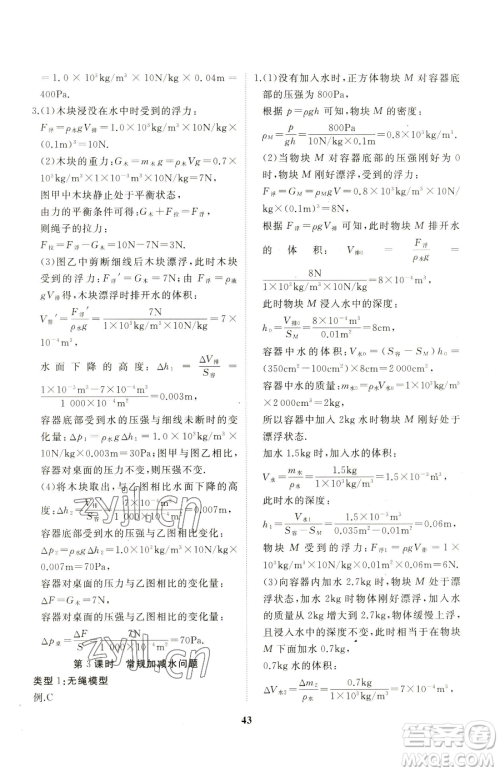 =1.0×10³kg/m³×10N/kg×0.04m=
400Pa.
3.(1)木块浸没在水中时受到的浮力:
F浮=ρ水gV排=1.0×10³kg/m³×10N/kg×
(0.1m)³=10N.
(2)木块的重力:G木=m木g=7N,
图甲中木块静止处于平衡状态,
由力的平衡条件可得:F拉+G木=F浮,
则绳子的拉力:
F拉=F浮-G木=10N-7N=3N.
(3)图乙中剪断细线后木块漂浮,此时木
块受到的浮力:F浮′=G木=7N,由F浮=ρ液
gV排得,木块漂浮时排开水的体积:
V排′=F浮′/ρ水g=7N/1×10³kg/m³×10N/kg=7×
10⁻⁴m³.
水面下降的高度:Δh₁=ΔV排/S容=
1×10⁻³m³-7×10⁻⁴m³/1 000×10⁻⁴m²=0.003m,
容器底部受到水的压强与细线未断时的变
化量:Δp₁=ρ水gΔh₁=1×10³kg/m³×
10N/kg×0.003m=30Pa.
容器对桌面的压力不变,图甲与图乙相比,
容器对桌面的压强不变,变化量为0.
(4)将木块取出,与乙图相比水面高度变
化量:Δh₂=V排′/S容=7×10⁻⁴m³/1 000×10⁻⁴m²=0.007m,
容器底部受到水的压强与乙图相比变化量:
Δp₂=ρ水gΔh₂=1×10³kg/m³×10N/kg×
0.007m=70Pa,
容器对桌面的压力与乙图相比的变化量:
ΔF=G木=7N,
容器对桌面的压强与乙图相比的变化量:
Δp=ΔF/S容=7N/1 000×10⁻⁴m²=70Pa.
第3课时 常规加减水问题
类型1:无绳模型
例.C
1.(1)没有加入水时,正方体物块M对容器底
部的压强为800Pa,
根据p=ρgh可知,物块M的密度:
ρM=p/gh=800Pa/10N/kg×0.1m=0.8×10³kg/m³.
(2)当物块M对容器底部的压强刚好为0
时,物块M刚好漂浮,
根据物体漂浮条件可知,物块M受到的浮
力:F浮=GM=ρMgVM=0.8×10³kg/m³×
10N/kg×(0.1m)³=8N,
根据F浮=ρ液gV排可知,物块M排开水
的体积:V排1=F浮/ρ水g=
8N/1×10³kg/m³×10N/kg=8×10⁻⁴m³,
此时物块M浸入水中的深度:
h₀=V排1/SM=8×10⁻⁴m³/0.01m²=0.08m,
容器中水的体积:V水0=(S容-SM)h₀=
(350cm²-100cm²)×8cm=2000cm³,
容器中水的质量:m水0=ρ水V水0=1g/cm³
×2000cm³=2000g=2kg,
所以容器中加入2kg水时物块M刚好处于
漂浮状态.
加水1.5kg,加入水的体积:
V水=m水/ρ水=1.5kg/1×10³kg/m³=1.5×10⁻³m³,
此时水的深度:
h₁=V水/S容-SM=1.5×10⁻³m³/0.035m²-0.01m²=0.06m,
物块M受到的浮力:F浮1=ρ水gV排=1×
10³kg/m³×10N/kg×0.01m²×0.06m=6N.
(3)向容器内加水2.7kg时,物块M处于漂
浮状态,物块M受到的浮力为8N,
加水2kg到2.7kg,物体缓慢上浮,浮力不
变,物体M浸入水中的深度不变,
0.7kg水的体积:
ΔV水2=Δm₂/ρ水=0.7kg/1×10³kg/m³=0.7×10⁻³m³,
43